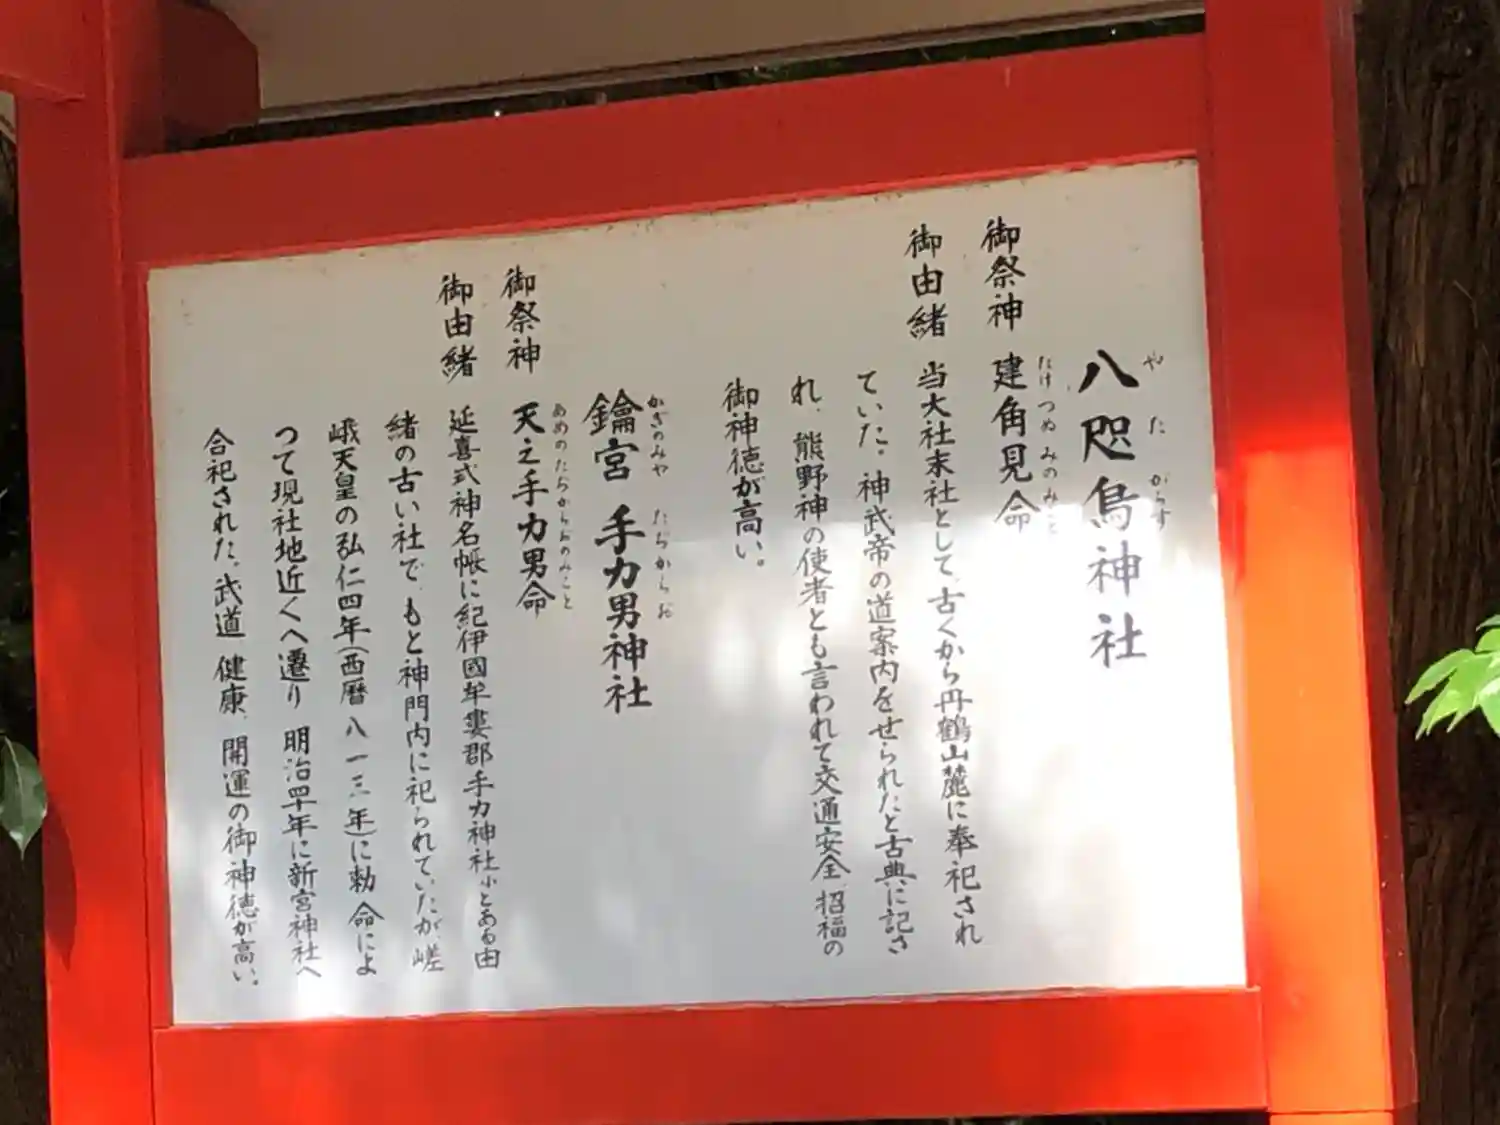 八咫烏神社
や た がらす
御祭神 建角見命
たけつぬみのみこと
御由緒 当大社末社として、古くから丹鶴山麓に奉祀され
ていた。神武帝の道案内をせられたと古典に記さ
れ、熊野神の使者とも言われて交通安全、招福の
御神徳が高い。
鑰宮 手力男神社
かぎのみや たぢからお
御祭神 天之手力男命
あめのたぢからおのみこと
御由緒 延喜式神名帳に紀伊國牟婁郡手力神社小とある由
緒の古い社で、もと神門内に祀られていたが、嵯
峨天皇の弘仁四年(西暦八一三年)に勅命によ
つて現社地近くへ遷り 明治四十年に新宮神社へ
合祀された。武道、健康、開運の御神徳が高い。